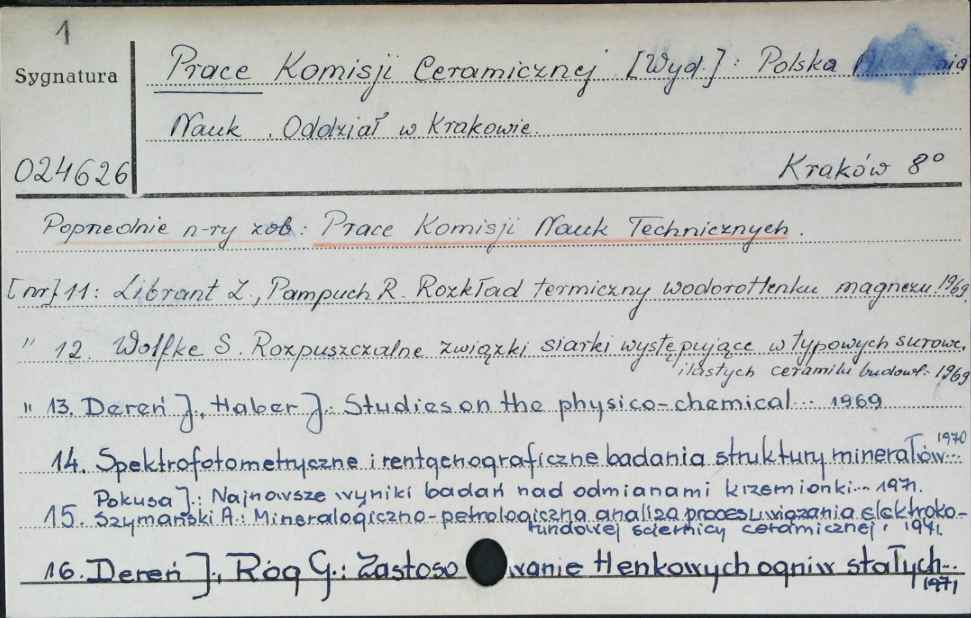 1
Sygnatura
024626
Prace Komisji Ceramicznej [Wyd.]: Polska
Nauk. Oddział w Krakowie.
Kraków 8°
Poprzednie n-ry zob: Prace Komisji Nauk Technicznych.
[nr] 11: Librant Z., Pampuch R. Rozkład termiczny wodorotlenku magnezu. 1969
" 12. Wolfke S. Rozpuszczalne związki siarki występujące w typowych surowc.
ilastych ceramiki budowl. 1969
" 13. Dereń J., Haber J.: Studies on the physico-chemical... 1969
14. Spektrofotometryczne i rentgenograficzne badania struktury minerałów... 1970
Pokusa J.: Najnowsze wyniki badań nad odmianami krzemionki... 1971.
15. Szymański A.: Mineralogiczno-petrologiczna analiza procesu wiązania elektroko-
rundowej ściernicy ceramicznej. 1971.
16. Dereń J., Róg G.: Zastosowanie tlenkowych ogniw stałych...
1971